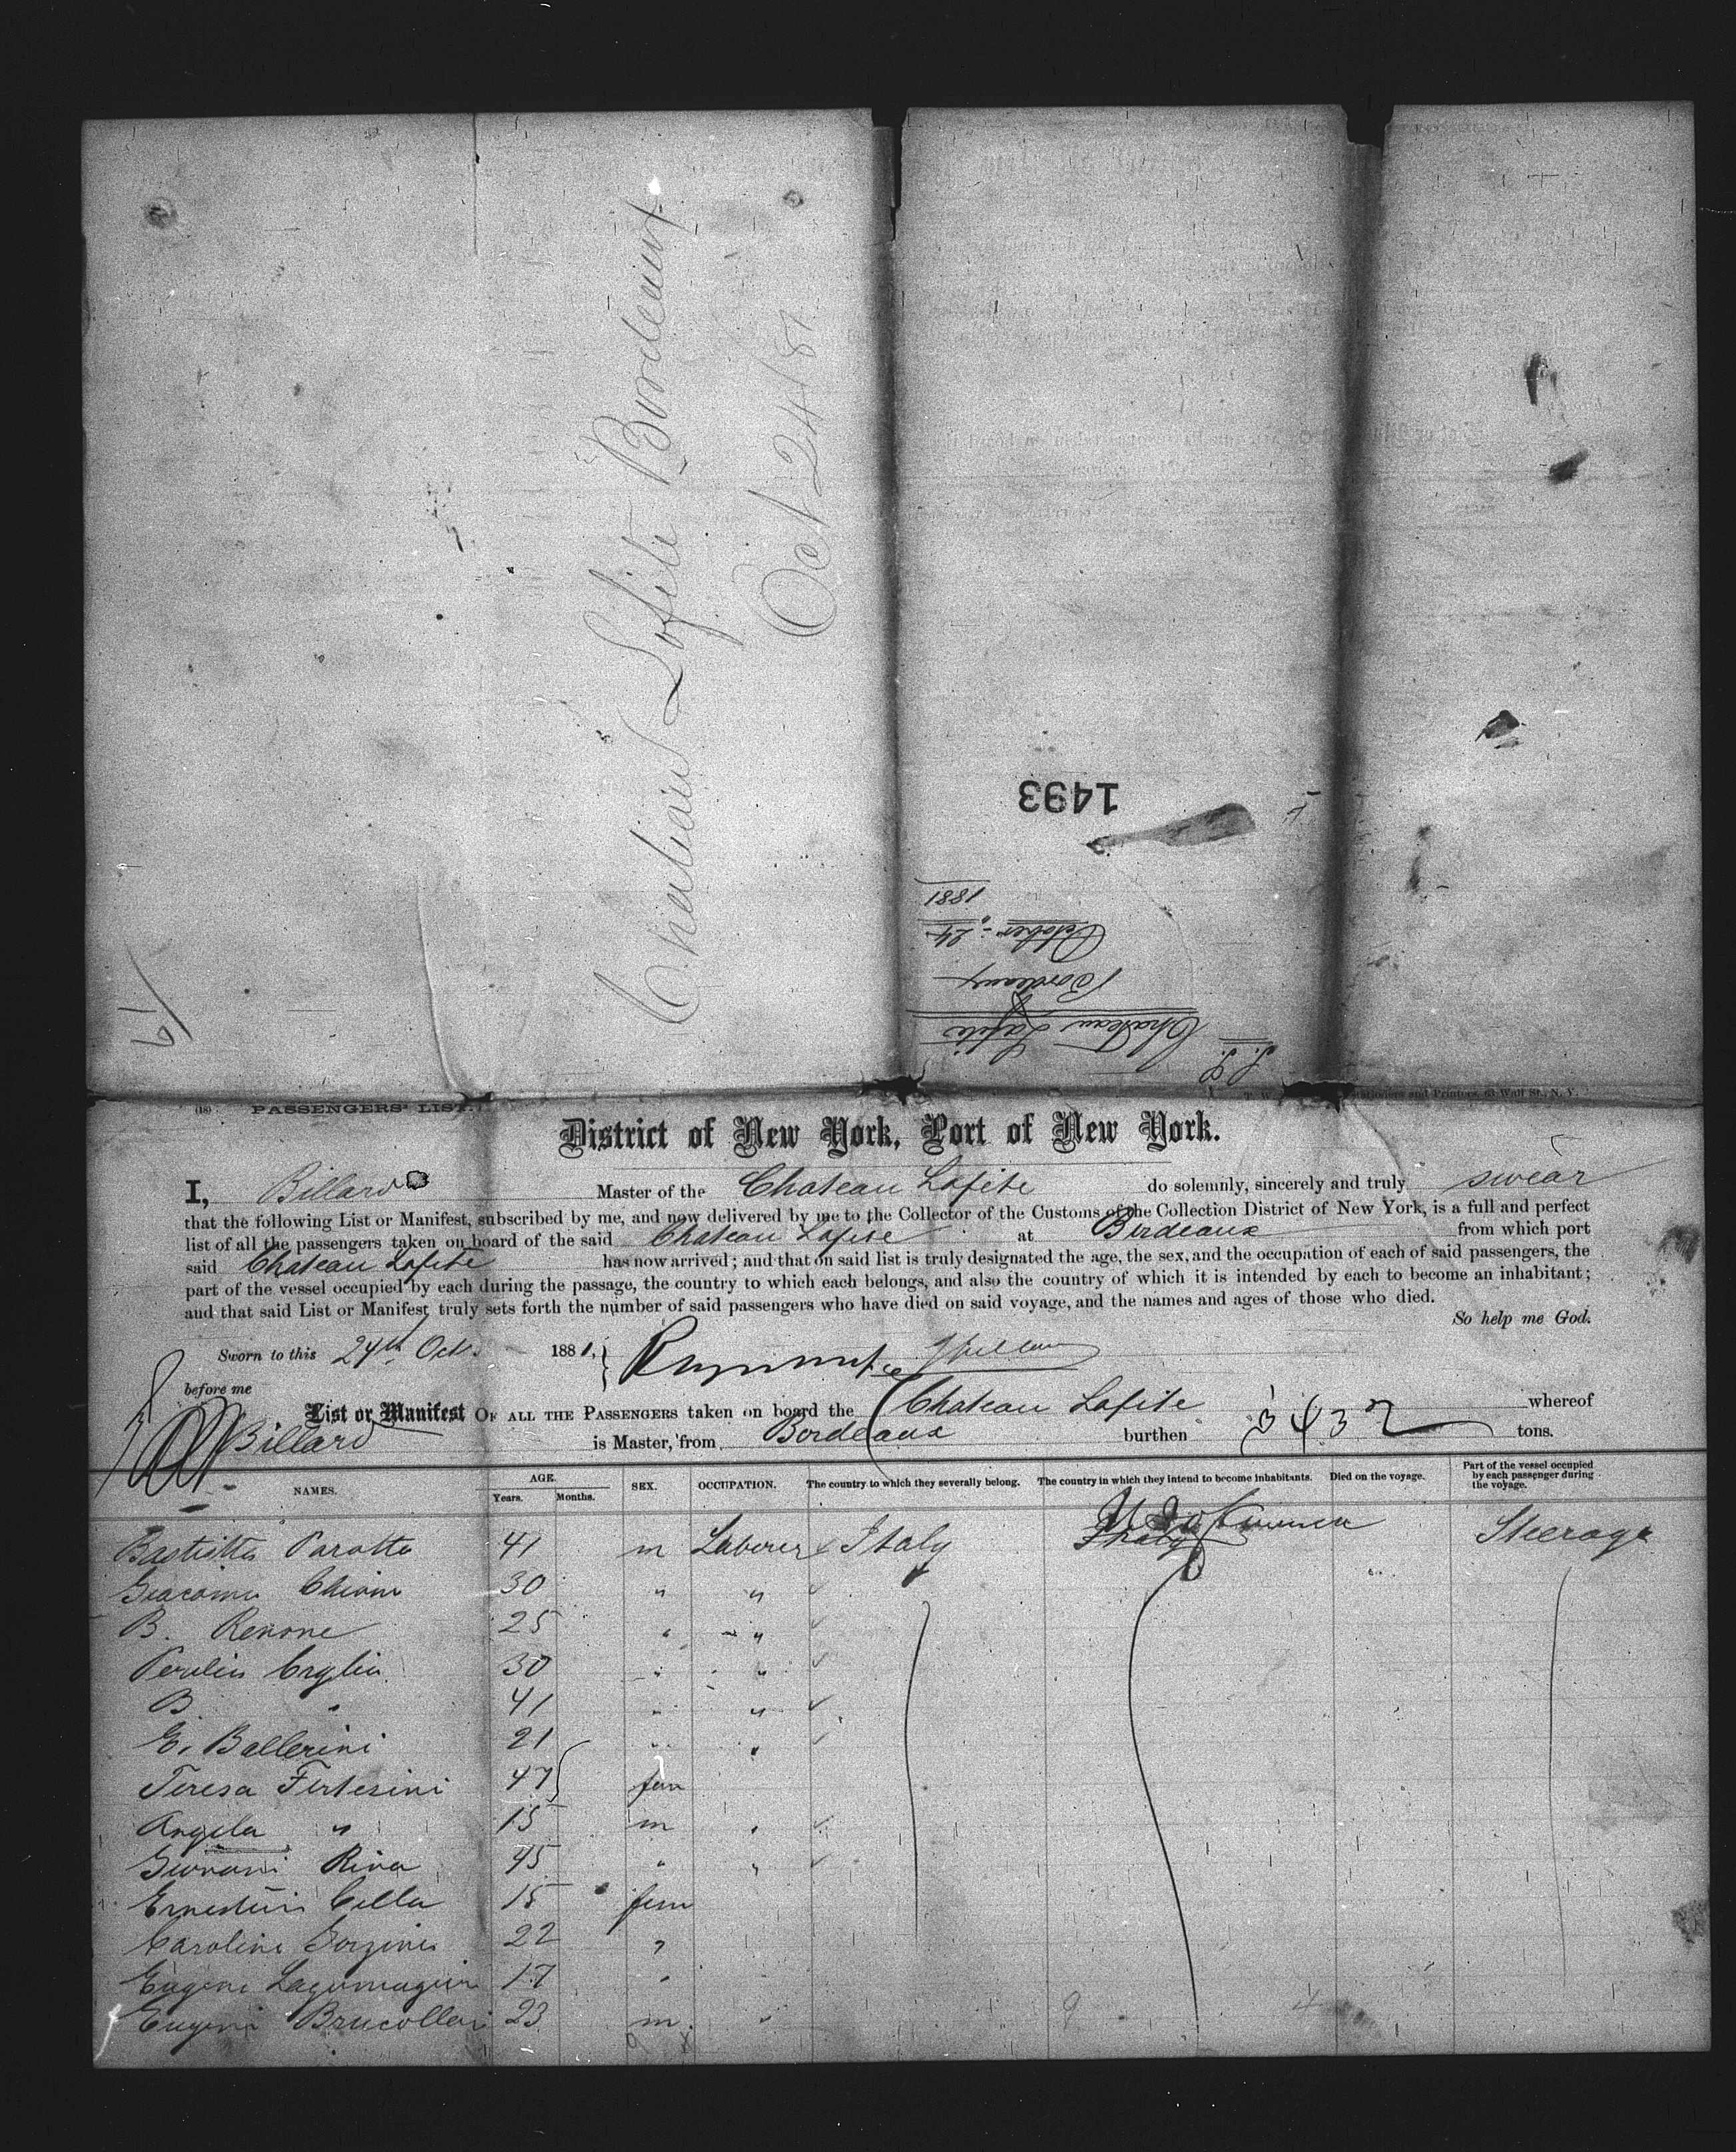 Chateau Lafite Bordeaux
Oct 24/81
1493
S.S.
Chateau Lafite
Bordeaux
October 24
1881
61
(18) PASSENGERS' LIST.
and Printers, 63 Wall St., N. Y.
District of New York, Port of New York.
I, Billard Master of the Chateau Lafite do solemnly, sincerely and truly swear
that the following List or Manifest, subscribed by me, and now delivered by me to the Collector of the Customs of the Collection District of New York, is a full and perfect
list of all the passengers taken on board of the said Chateau Lafite at Bordeaux from which port
said Chateau Lafite has now arrived; and that on said list is truly designated the age, the sex, and the occupation of each of said passengers, the
part of the vessel occupied by each during the passage, the country to which each belongs, and also the country of which it is intended by each to become an inhabitant;
and that said List or Manifest truly sets forth the number of said passengers who have died on said voyage, and the names and ages of those who died.
So help me God.
Sworn to this 24th Oct. 1881,
before me
List or Manifest OF ALL THE PASSENGERS taken on board the Chateau Lafite whereof
Billard is Master, from Bordeaux burthen 3432 tons.
NAMES. AGE. Years. Months. SEX. OCCUPATION. The country to which they severally belong. The country in which they intend to become inhabitants. Died on the voyage. Part of the vessel occupied by each passenger during the voyage.
Bastistta Parotta 41 m Laborer Italy Steerage
Giacomo 30 " "
B. Renone 25 " "
30 " "
B. " 41 " "
E. Ballerini 21 " "
Teresa Fertesini 47 fem
Angela " 15 m "
Giovani Riva 45 " "
Cella 15 fem
Caroline 22 "
Eugene Lagomagin 17 "
Eugeni Brucollari 23 m "
9 4